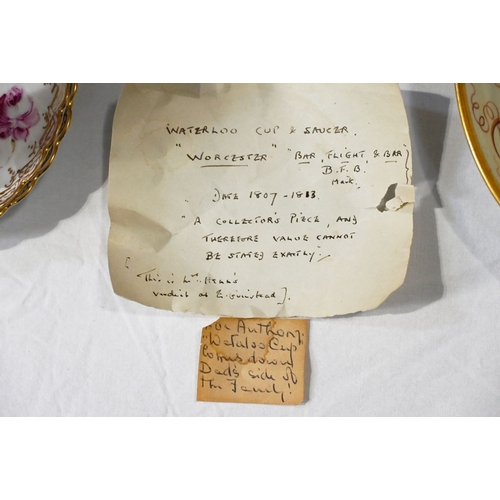 WATERLOO CUP & SAUCER.
"WORCESTER" "BAR, FLIGHT, & BAR"
B.F.B.
Mark.
DATE 1807-1813
"A COLLECTOR'S PIECE, AND
THEREFORE VALUE CANNOT
BE STATED EXACTLY".
[This is Mr. 
verdict at E. Grinstead].
Anthony.
"Waterloo Cup
Comes down
Dad's side of
the Family!